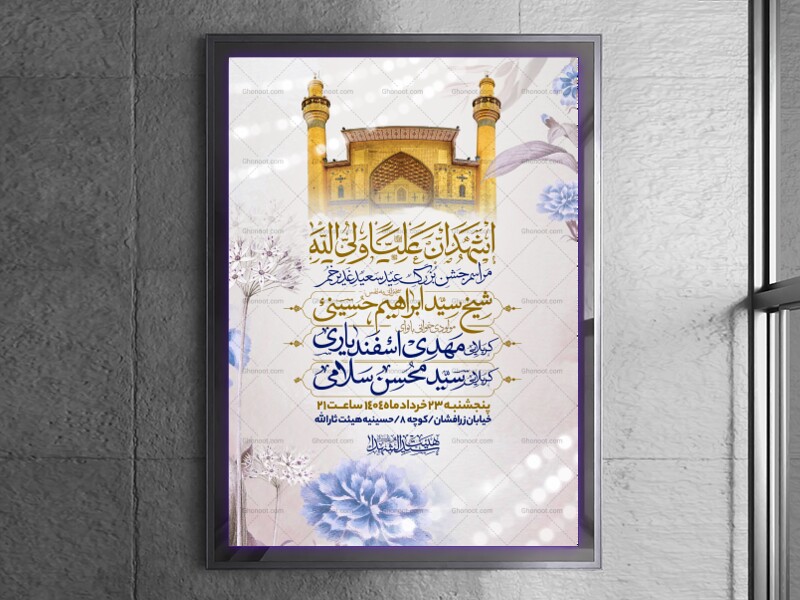 اشهد ان علیا ولی الله
مراسم جشن بزرگ عید سعید غدیر خم
سخنرانی
شیخ سید ابراهیم حسینی
مولودی خوانی با نوای
کربلایی مهدی اسفندیاری
کربلایی سید محسن سلامی
پنجشنبه ۲۳ خرداد ماه ۱۴۰۴ ساعت ۲۱
خیابان زرافشان / کوچه ۸ / حسینیه هیئت ثارالله
هیئت سیدالشهدا
Ghonoot.com